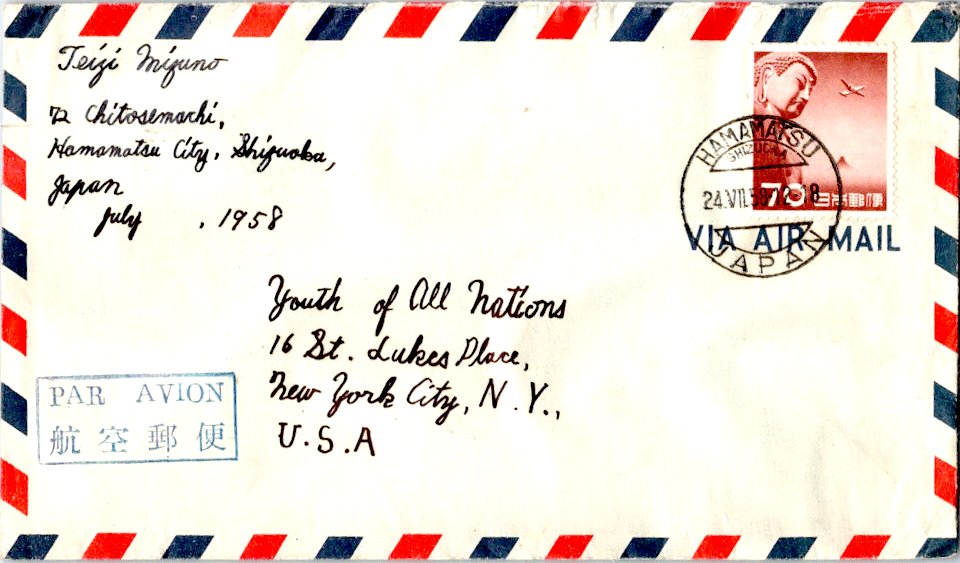 Teizi Mizuno
72 Chitosemachi,
Hamamatsu City, Shizuoka,
Japan
July , 1958
HAMAMATSU
SHIZUOKA
24.VII.58.12-18
JAPAN
70 日本郵便
VIA AIR MAIL
Youth of All Nations
16 St. Lukes Place,
New York City, N.Y.,
U.S.A
PAR AVION
航空郵便